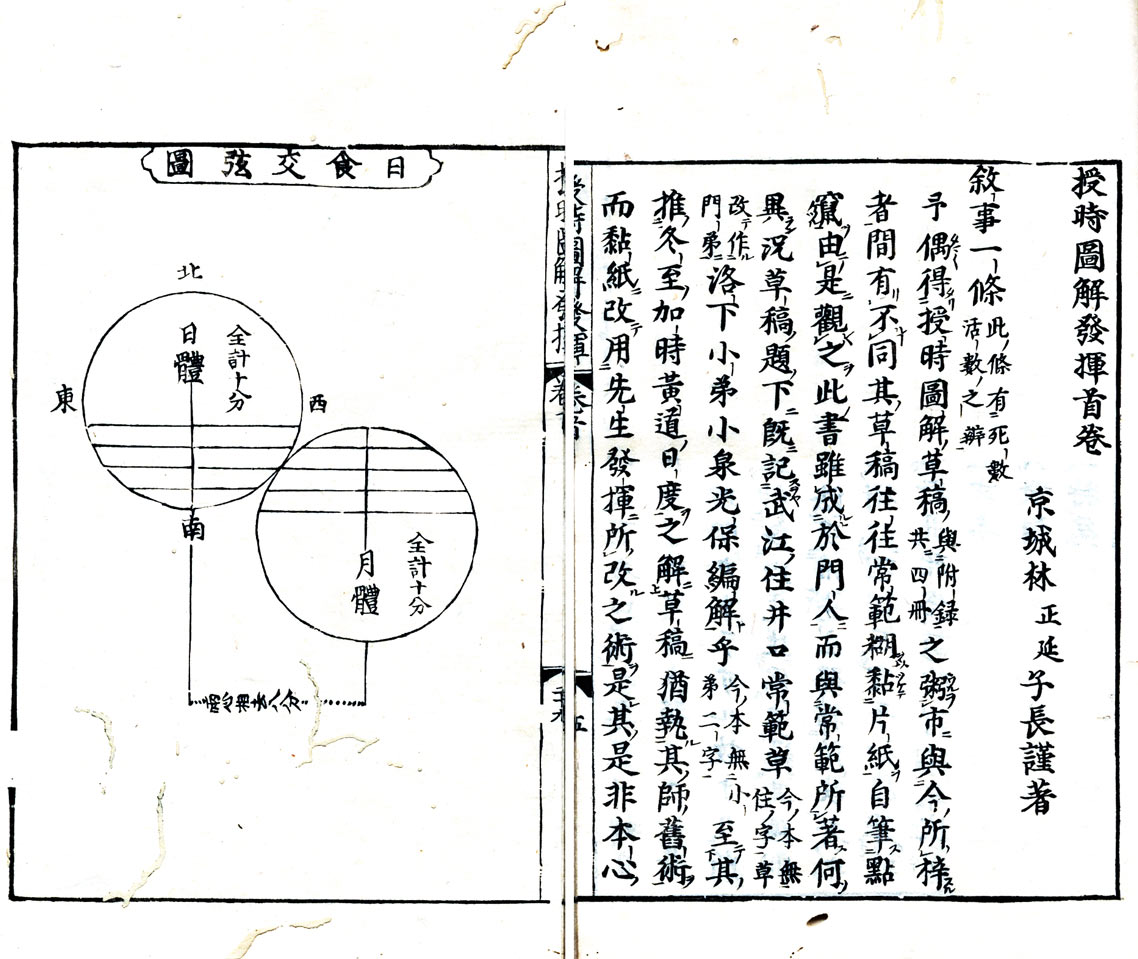 授時圖解發揮首卷
京城林正延子長謹著
敘事一條此條有死數
活數之辯
予偶得授時圖解草稿與附録
共四冊之粥市與今所梓
者間有不同其草稿往往常範糊黏片紙自筆點
竄由是觀之此書雖成於門人而與常範所著何
異況草稿題下既記武江住井口常範草今本無
住字草
改作
門弟洛下小弟小泉光保編解乎今本無小
弟二字至其
推冬至加時黃道日度之解草稿猶執其師舊術
而黏紙改用先生發揮所改之術是其是非本心
授時圖解發揮
日食交弦圖
北
東
西
南
日體
全計十分
月體
全計十分